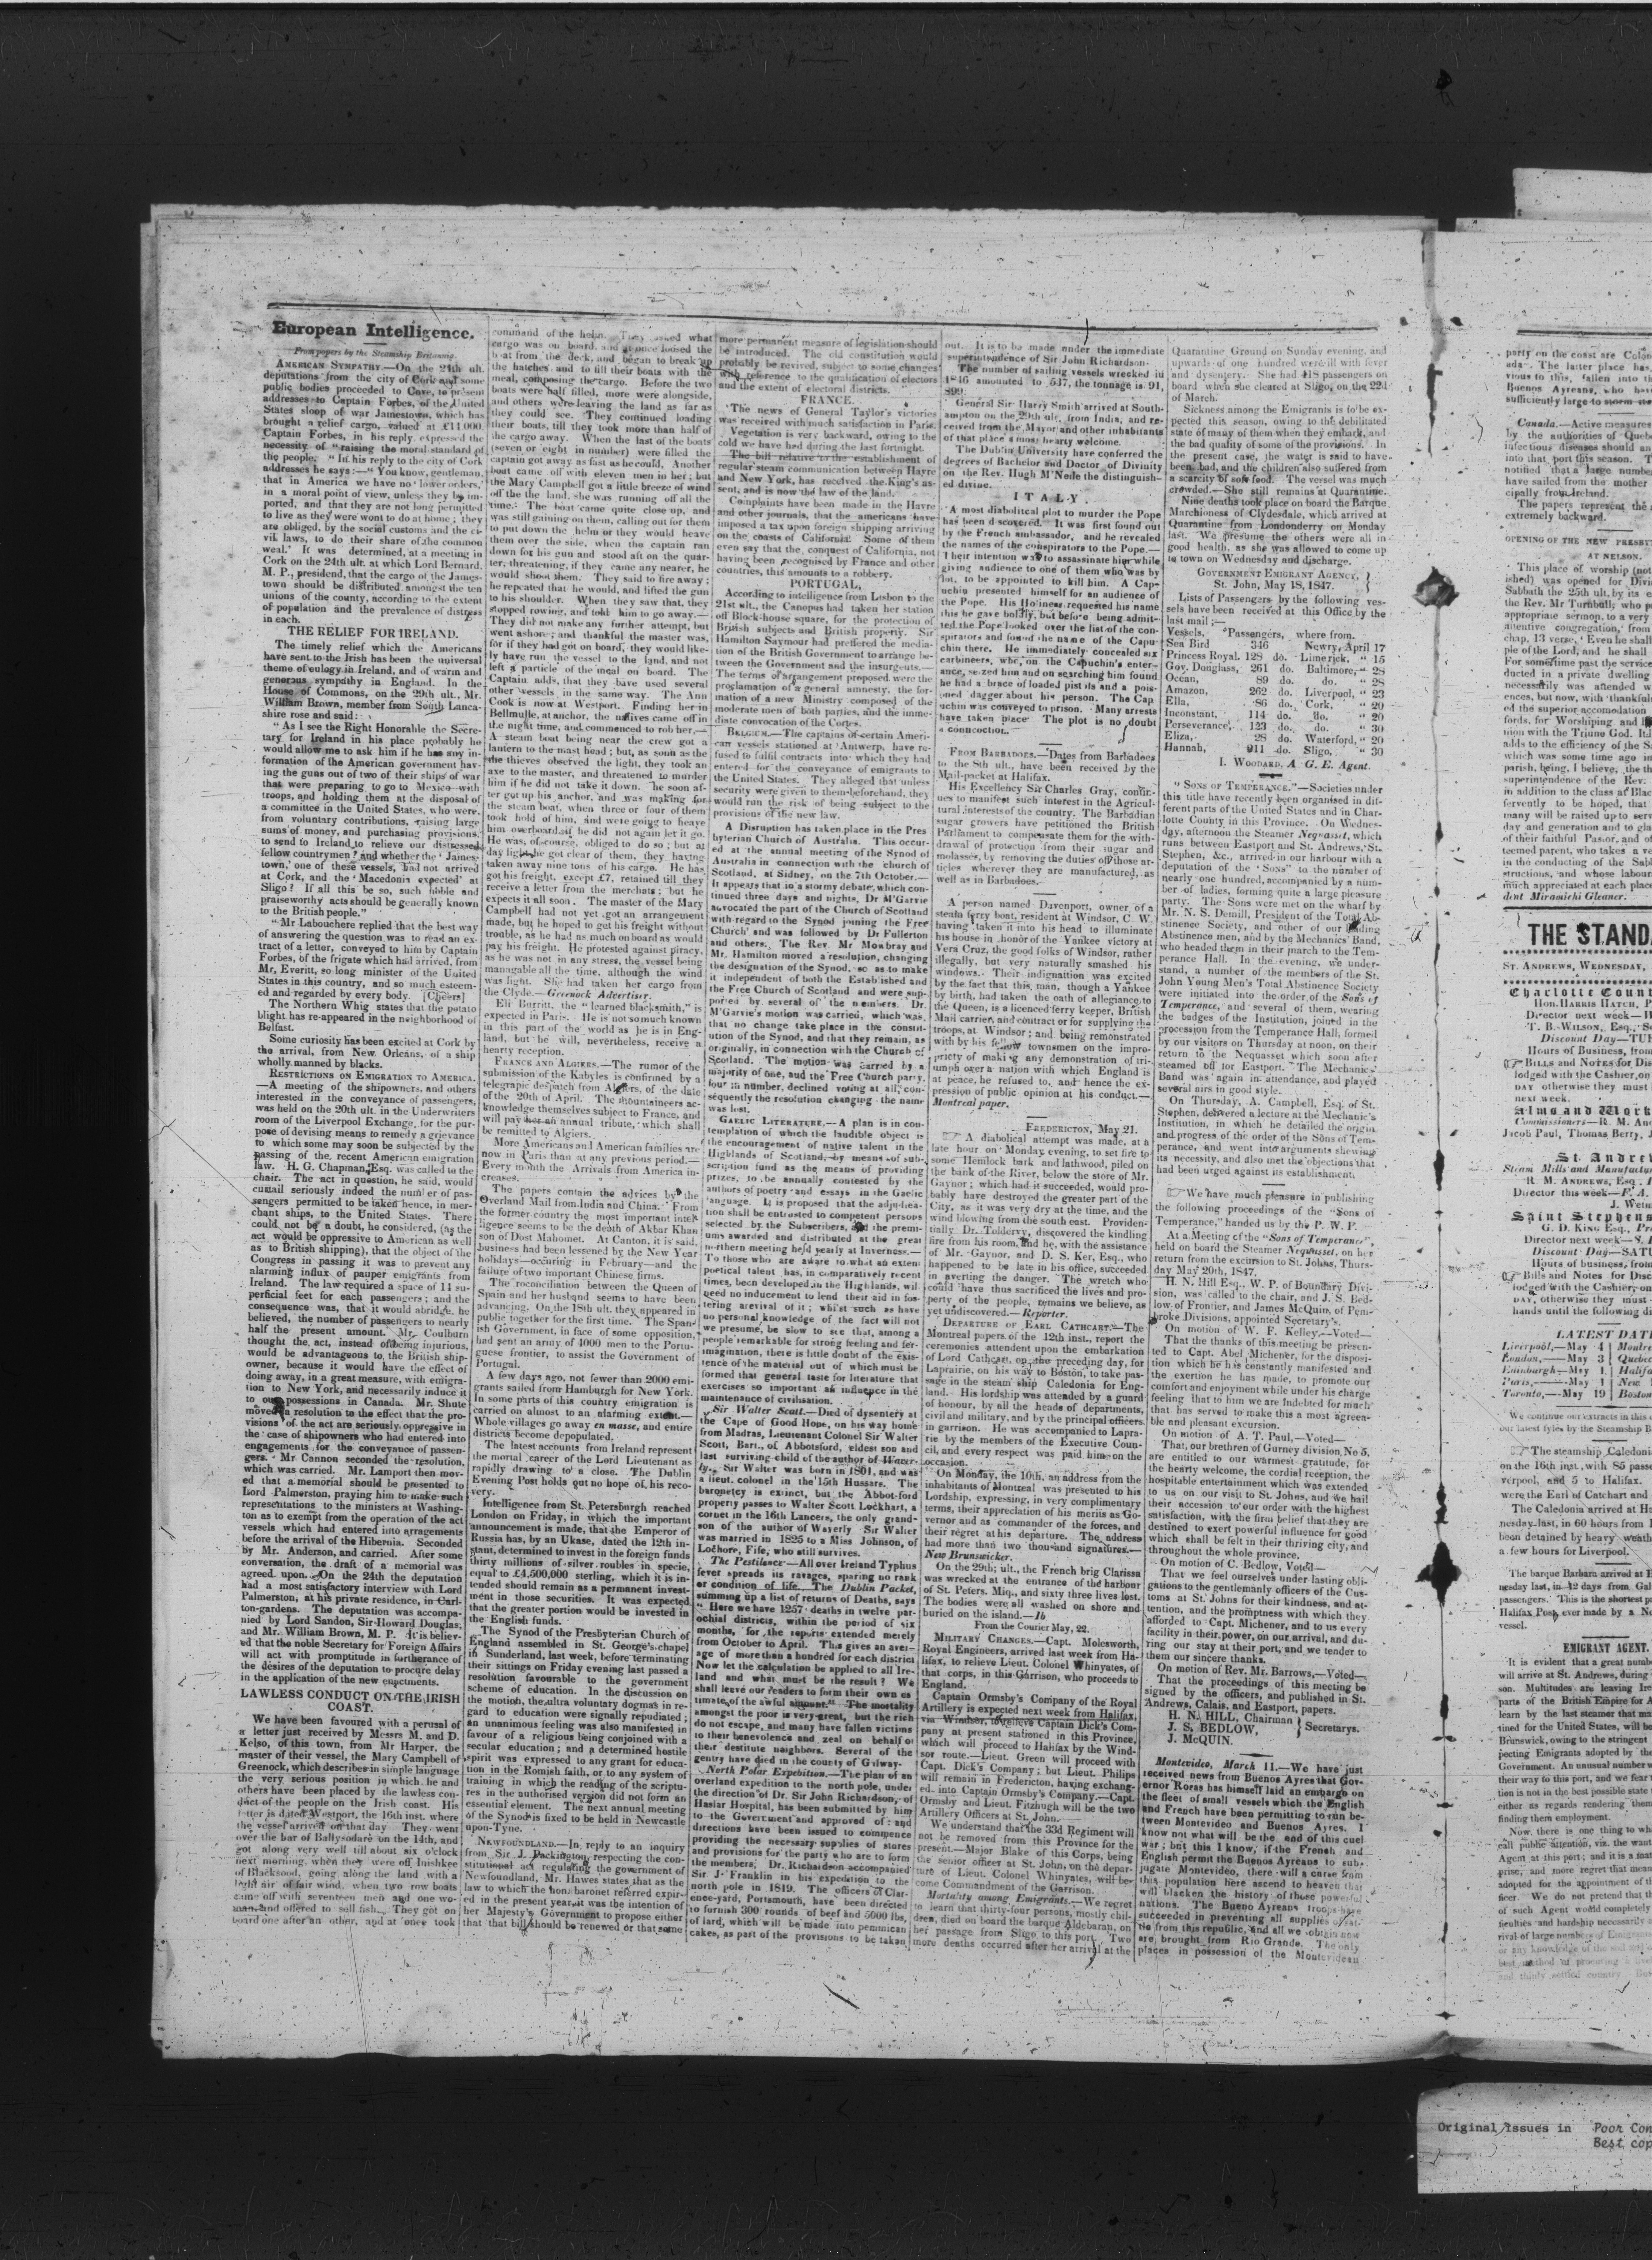 European Intelligence.
From papers by the Steamship Britannia.
AMERICAN SYMPATHY.—On the 24th ult.
deputations from the city of Cork and some
public bodies proceeded to Cove, to present
addresses to Captain Forbes, of the United
States sloop of war Jamestown, which has
brought a relief cargo, valued at £14.000.
Captain Forbes, in his reply expressed the
necessity of "raising the moral standard of
the people. "In his reply to the city of Cork
addresses he says:—"You know, gentleman,
that in America we have no 'lower orders,'
in a moral point of view, unless they be im-
ported, and that they are not long permitted
to live as they were wont to do at home; they
are obliged, by the social customs and the ci-
vil laws, to do their share of the common
weal.' It was determined, at a meeting in
Cork on the 24th ult. at which Lord Bernard.
M. P., presidend, that the cargo of the James-
town should be distributed amongst the ten
unions of the county, according to the extent
of population and the prevalence of distress
in each.
THE RELIEF FOR IRELAND.
The timely relief which the Americans
have sent to the Irish has been the universal
theme of eulogy in Ireland, and of warm and
generous sympathy in England. In the
House of Commons, on the 29th ult., Mr.
William Brown, member from South Lanca-
shire rose and said:
"As I see the Right Honorable the Secre-
tary for Ireland in his place probably he
would allow me to ask him if he has any in-
formation of the American government hav-
ing the guns out of two of their ships of war
that were preparing to go to Mexico with
troops, and holding them at the disposal of
a committee in the United States, who were,
from voluntary contributions, raising large
sums of money, and purchasing provisions.
to send to Ireland to relieve our distressed
fellow countrymen? and whether the 'James-
town,' one of these vessels, had not arrived
at Cork, and the 'Macedonia expected' at
Sligo? If all this be so, such noble and
praiseworthy acts should be generally known
to the British people."
"Mr Labouchere replied that the best way
of answering the question was to read an ex-
tract of a letter, conveyed to him by Captain
Forbes, of the frigate which had arrived, from
Mr, Everitt, so long minister of the United
States in this country, and so much esteem-
ed and regarded by every body. [Cheers]
The Northern Whig states that the potato
blight has re-appeared in the neighborhood of
Belfast.
Some curiosity has been excited at Cork by
the arrival, from New Orleans, of a ship
wholly manned by blacks.
RESTRICTIONS ON EMIGRATION TO AMERICA.
—A meeting of the shipowners, and others
interested in the conveyance of passengers,
was held on the 20th ult. in the Underwriters
room of the Liverpool Exchange, for the pur-
pose of devising means to remedy a grievance
to which some may soon be subjected by the
passing of the recent American emigration
law. H. G. Chapman, Esq. was called to the
chair. The act in question, he said, would
curtail seriously indeed the number of pas-
sengers permitted to be taken hence, in mer-
chant ships, to the United States. There
could not be a doubt, he considered, (as the
act would be oppressive to American as well
as to British shipping), that the object of the
Congress in passing it was to prevent any
alarming influx of pauper emigrants from
Ireland. The law required a space of 11 su-
perficial feet for each passengers; and the
consequence was, that it would abridge, he
believed, the number of passengers to nearly
half the present amount. Mr. Coulburn
thought the act, instead of being injurious,
would be advantageous to the British ship-
owner, because it would have the effect of
doing away, in a great measure, with emigra-
tion to New York, and necessarily induce it
to our possessions in Canada. Mr. Shute
moved a resolution to the effect that the pro-
visions of the act are seriously oppressive in
the case of shipowners who had entered into
engagements for the conveyance of passen-
gers. Mr. Cannon seconded the resolution,
which was carried. Mr. Lamport then mov-
ed that a memorial should be presented to
Lord Palmerston, praying him to make such
representations to the ministers at Washing-
ton as to exempt from the operation of the act
vessels which had entered into arragements
before the arrival of the Hibernia. Seconded
by Mr. Anderson, and carried. After some
conversation, the draft of a memorial was
agreed upon. On the 24th the deputation
had a most satisfactory interview with Lord
Palmerston, at his private residence, in Carl-
ton-gardens. The deputation was accompa-
nied by Lord Sandon, Sir Howard Douglas,
and Mr. William Brown, M. P. It is believ-
ed that the noble Secretary for Foreign Affairs
will act with promptitude in furtherance of
the desires of the deputation to procure delay
in the application of the new enactments.
LAWLESS CONDUCT ON THE IRISH
COAST.
We have been favoured with a perusal of
a letter just received by Messrs M. and D.
Kelso, of this town, from Mr Harper, the
master of their vessel, the Mary Campbell of
Greenock, which describes in simple language
the very serious position in which he and
others have been placed by the lawless con-
duct of the people on the Irish coast. His
letter is dated Westport, the 16th inst. where
the vessel arrived on that day They went
over the bar of Ballysodare on the 14th, and
got along very well till about six o'clock
next morning, when they were off Inishkee
of Blacksood, going along the land with a
light air of fair wind, when two row boats
came off with seventeen men and one wo-
man, and offered to sell fish. They got on
board one after an other, and at once took
command of the helm. They asked what
cargo was on board, and at once loosed the
boat from the deck, and began to break up
the hatches and to fill their boats with the
meal, composing the cargo. Before the two
boats were half filled, more were alongside,
and others were leaving the land as far as
they could see. They continued loading
their boats, till they took more than half of
the cargo away. When the last of the boats
(seven or eight in number) were filled the
captain got away as fast as he could. Another
boat came off with eleven men in her; but
the Mary Campbell got a little breeze of wind
off the the land, she was running off all the
time. The boat came quite close up, and
was still gaining on them, calling out for them
to put down the helm or they would heave
them over the side, when the captain ran
down for his gun and stood aft on the quar-
ter, threatening, if they came any nearer, he
would shoot them. They said to fire away;
he repeated that he would, and lifted the gun
to his shoulder. When they saw that, they
stopped rowing, and told him to go away.—
They did not make any further attempt, but
went ashore; and thankful the master was,
for if they had got on board, they would like-
ly have run the vessel to the land, and not
left a particle of the meal on board. The
Captain adds, that they have used several
other vessels in the same way. The Ann
Cook is now at Westport. Finding her in
Bellmulle, at anchor, the natives came off in
the night time, and commenced to rob her.—
A steam boat being near the crew got a
lantern to the mast head; but, as soon as the
the thieves observed the light, they took an
axe to the master, and threatened to murder
him if he did not take it down. The soon af-
ter got up his anchor, and was making for
the steam boat, when three or four of them
took hold of him, and were going to heave
him overboard if he did not again let it go.
He was, of course, obliged to do so; but at
day light he got clear of them, they having
taken away nine tons of his cargo. He has
got his freight, except £7, retained till they
receive a letter from the merchats; but he
expects it all soon. The master of the Mary
Campbell had not yet got an arrangement
made, but he hoped to get his freight without
trouble, as he had as much on board as would
pay his freight. He protested against piracy,
as he was not in any stress, the vessel being
managable all the time, although the wind
was light. She had taken her cargo from
the Clyde.—Greenock Advertiser.
Eli Burritt, the "learned blacksmith," is
expected in Paris. He is not so much known
in this part of the world as he is in Eng-
land, but he will, nevertheless, receive a
hearty reception.
FRANCE AND ALGIERS.—The rumor of the
submission of the Kabyles is confirmed by a
telegrapic despatch from Algiers, of the date
of the 20th of April. The mountaineers ac-
knowledge themselves subject to France, and
will pay her an annual tribute, which shall
be remitted to Algiers.
More Americans and American families are
now in Paris than at any previous period.—
Every month the Arrivals from America in-
creases.
The papers contain the advices by the
Overland Mail from India and China. From
the former country the most important intel-
ligence seems to be the death of Akbar Khan
son of Dost Mahomet. At Canton, it is said,
business had been lessened by the New Year
holidays—occuring in February—and the
failure of two important Chinese firms.
The reconciliation between the Queen of
Spain and her husband seems to have been
advancing. On the 18th ult. they appeared in
public together for the first time. The Span-
ish Government, in face of some opposition,
had sent an army of 4000 men to the Portu-
guese frontier, to assist the Government of
Portugal.
A few days ago, not fewer than 2000 emi-
grants sailed from Hamburgh for New York.
In some parts of this country emigration is
carried on almost to an alarming extent.—
Whole villages go away en masse, and entire
districts become depopulated.
The latest accounts from Ireland represent
the mortal career of the Lord Lieutenant as
rapidly drawing to a close. The Dublin
Evening Post holds out no hope of his reco-
very.
Intelligence from St. Petersburgh reached
London on Friday, in which the important
announcement is made, that the Emperor of
Russia has, by an Ukase, dated the 12th in-
stant, determined to invest in the foreign funds
thirty millions of silver roubles in specie,
equal to £4,500,000 sterling, which it is in-
tended should remain as a permanent invest-
ment in those securities. It was expected
that the greater portion would be invested in
the English funds.
The Synod of the Presbyterian Church of
England assembled in St. George's-chapel
in Sunderland, last week, before terminating
their sittings on Friday evening last passed a
resolution favourable to the government
scheme of education. In the discussion on
the motion, the ultra voluntary dogmas in re-
gard to education were signally repudiated;
an unanimous feeling was also manifested in
favour of a religious being conjoined with a
secular education; and a determined hostile
spirit was expressed to any grant for educa-
tion in the Romish faith, or to any system of
training in which the reading of the scriptu-
res in the authorised version did not form an
essential element. The next annual meeting
of the Synod is fixed to be held in Newcastle
upon-Tyne.
NEWFOUNDLAND.—In reply to an inquiry
from Sir J. Packington, respecting the con-
stitutional act regulating the government of
Newfoundland, Mr. Hawes states that as the
law to which the hon. baronet referred expir-
ed in the present year, it was the intention of
her Majesty's Government to propose either
that that bill should be renewed or that some
more permanent measure of legislation should
be introduced. The old constitution would
probably be revived, subject to some changes
with reference to the qualification of electors
and the extent of electoral districts.
FRANCE.
The news of General Taylor's victories
was received with much satisfaction in Paris.
Vegetation is very backward, owing to the
cold we have had during the last fortnight.
The bill relative to the establishment of
regular steam communication between Havre
and New York, has received the King's as-
sent, and is now the law of the land.
Complaints have been made in the Havre
and other journals, that the americans have
imposed a tax upon foreign shipping arriving
on the coasts of California. Some of them
even say that the conquest of California, not
having been recognised by France and other
countries, this amounts to a robbery.
PORTUGAL,
According to intelligence from Lisbon to the
21st ult., the Canopus had taken her station
off Block-house square, for the protection of
British subjects and British property. Sir
Hamilton Saymour had preffered the media-
tion of the British Government to arrange be-
tween the Government and the insurgents.—
The terms of arrangement proposed were the
proclamation of a general amnesty, the for-
mation of a new Ministry composed of the
moderate men of both parties, and the imme-
diate convocation of the Cortes.
BELGIUM.—The captains of certain Ameri-
can vessels stationed at Antwerp, have re-
fused to fulfil contracts into which they had
entered for the conveyance of emigrants to
the United States. They alleged that unless
security were given to them beforehand, they
would run the risk of being subject to the
provisions of the new law.
A Disruption has taken place in the Pres
byterian Church of Australia. This occur-
ed at the annual meeting of the Synod of
Australia in connection with the church of
Scotland, at Sidney, on the 7th October.—
It appears that in a stormy debate, which con-
tinued three days and nights, Dr M'Garvie
advocated the part of the Church of Scotland
with regard to the Synod joining the Free
Church' and was followed by Dr Fullerton
and others. The Rev. Mr Mowbray and
Mr. Hamilton moved a resolution, changing
the designation of the Synod, so as to make
it independent of both the Established and
the Free Church of Scotland and were sup-
ported by several of the members. Dr.
M'Garvie's motion was carried, which was,
that no change take place in the constit-
ution of the Synod, and that they remain, as
originally, in connection with the Church of
Scotland. The motion was carried by a
majority of one, and the Free Church party,
four in number, declined voting at all, con-
sequently the resolution changing the name
was lost.
GAELIC LITERATURE.—A plan is in con-
templation of which the laudible object is
the encouragement of native talent in the
Highlands of Scotland, by means of sub-
scription fund as the means of providing
prizes, to be annually contested by the
authors of poetry and essays in the Gaelic
language. It is proposed that the adjudica-
tion shall be entrusted to competent persons
selected by the Subscribers, and the premi-
ums awarded and distributed at the great
northern meeting held yearly at Inverness.—
To those who are aware to what an exten
portical talent has, in comparatively recent
times, been developed in the Highlands, wil.
need no inducement to lend their aid in fos-
tering arevival of it; whilst such as have
no personal knowledge of the fact will not
we presume, be slow to see that, among a
people remarkable for strong feeling and fer-
imagination, there is little doubt of the exis-
tence of the material out of which must be
formed that general taste for literature that
exercises so important an influence in the
maintenance of civilisation.
Sir Walter Scott.—Died of dysentery at
the Cape of Good Hope, on his way home
from Madras, Lieutenant Colonel Sir Walter
Scott, Bart., of Abbotsford, eldest son and
last surviving child of the author of Waver-
ly. Sir Walter was born in 1801, and was
a lieut. colonel in the 15th Hussars. The
baronetcy is extinct, but the Abbot-ford
property passes to Walter Scott Lockhart, a
cornet in the 16th Lancers, the only grand-
son of the author of Waverly Sir Walter
was married in 1825 to a Miss Johnson, of
Lochore, Fife, who still survives.
The Pestilence—All over Ireland Typhus
fever spreads its ravages, sparing no rank
or condition of life. The Dublin Packet,
summing up a list of returns of Deaths, says
"Here we have 1257 deaths in twelve par-
ochial districts, within the period of six
months, for the reports extended merely
from October to April. This gives an aver-
age of more than a hundred for each district
Now let the calculation be applied to all Ire-
land and what must be the result? We
shall leave our readers to form their own es
timate of the awful amount." The mortality
amongst the poor is very great, but the rich
do not escape, and many have fallen victims
to their benevolence and zeal on behalf of
their destitute neighbors. Several of the
gentry have died in the county of Galway-
North Polar Expedition.—The plan of an
overland expedition to the north pole, under
the direction of Dr. Sir John Richardson, of
Haslar Hospital, has been submitted by him
to the Government and approved of: and
directions have been issued to commence
providing the necessary supplies of stores
and provisions for the party who are to form
the members; Dr. Richardson accompanied
Sir J. Franklin in his expedition to the
north pole in 1819. The officers of Clar-
ence-yard, Portsmouth, have been directed
to furnish 300 rounds of beef and 5000 lbs.
of lard, which will be made into pemmican
cakes, as part of the provisions to be taken
out. It is to be made under the immediate
superintendence of Sir John Richardson.
The number of sailing vessels wrecked in
1846 amounted to 537, the tonnage is 91,
899.
General Sir Harry Smith arrived at South-
ampton on the 29th ult. from India, and re-
ceived from the Mayor and other inhabitants
of that place a most hearty welcome.
The Dublin University have conferred the
degrees of Bachelor and Doctor of Divinity
on the Rev. Hugh M'Neile the distinguish-
ed divine.
ITALY.
A most diabolitcal plot to murder the Pope
has been discovered. It was first found out
by the French ambassador, and he revealed
the names of the conspirators to the Pope.—
Their intention was to assassinate him while
giving audience to one of them who was by
lot, to be appointed to kill him. A Cape-
uchin presented himself for an audience of
the Pope. His Holiness requested his name
this he gave boldly, but before being admit-
ted the Pope looked over the list of the con-
spirators and found the name of the Capu-
chin there. He immediately concealed six
carbineers, who, on the Capuchin's enter-
ance, seized him and on searching him found
he had a brace of loaded pistols and a pois-
oned dagger about his person. The Cap
uchin was conveyed to prison. Many arrests
have taken place The plot is no doubt
a concoction.
FROM BARBADOES.—Dates from Barbadoes
to the 8th ult., have been received by the
Mail-packet at Halifax.
His Excellency Sir Charles Gray, contin-
ues to manifest such interest in the Agricul-
tural interests of the country. The Barbadian
sugar growers have petitioned the British
Parliament to compensate them for the with-
drawal of protection from their sugar and
molasses, by removing the duties of those ar-
ticles wherever they are manufactured, as
well as in Barbadoes.
A person named Davenport, owner of a
steam ferry boat, resident at Windsor, C. W.
having taken it into his head to illuminate
his house in honor of the Yankee victory at
Vera Cruz, the good folks of Windsor, rather
illegally, but very naturally smashed his
windows. Their indignattion was excited
by the fact that this man, though a Yankee
by birth, had taken the oath of allegiance to
the Queen, is a licenced ferry keeper, British
Mail carrier, and contract or for supplying the
troops, at Windsor; and being remonstrated
with by his fellow townsmen on the impro-
priety of making any demonstration of tri-
umph over a nation with which England is
at peace, he refused to, and hence the ex-
pression of public opinion at his conduct.—
Montreal paper.
FREDERICTON, May 21.
A diabolical attempt was made, at a
late hour on Monday evening, to set fire to
some Hemlock bark and lathwood, piled on
the bank of the River, below the store of Mr.
Gaynor; which had it succeeded, would pro-
bably have destroyed the greater part of the
City, as it was very dry at the time, and the
wind blowing from the south east. Providen-
tially Dr. Toldervy, discovered the kindling
fire from his room, and he, with the assistance
of Mr. Gaynor, and D. S. Ker, Esq., who
happened to be late in his office, succeeded
in averting the danger. The wretch who
could have thus sacrificed the lives and pro-
perty of the people, remains we believe, as
yet undiscovered.—Reporter.
DEPARTURE OF EARL CATHCART.—The
Montreal papers of the 12th inst., report the
ceremonies attendent upon the embarkation
of Lord Cathcart, on the preceding day, for
Laprairie, on his way to Boston, to take pas-
sage in the steam ship Caledonia for Eng-
land. His lordship was attended by a guard
of honour, by all the heads of departments,
civil and military, and by the principal officers
in garrison. He was accompanied to Lapra-
rie by the members of the Executive Coun-
cil, and every respect was paid him on the
occasion.
On Monday, the 10th, an address from the
inhabitants of Montreal was presented to his
Lordship, expressing, in very complimentary
terms, their appreciation of his merits as Go-
vernor and as commander of the forces, and
their regret at his departure. The address
had more than two thousand signatures.—
New Brunswicker.
On the 29th; ult., the French brig Clarissa
was wrecked at the entrance of the harbour
of St. Peters. Miq., and sixty three lives lost.
The bodies were all washed on shore and
buried on the island.—Ib
From the Courier May, 22.
MILITARY CHANGES.—Capt. Molesworth,
Royal Engineers, arrived last week from Ha-
lifax, to relieve Lieut. Colonel Whinyates, of
that corps, in this Garrison, who proceeds to
England.
Captain Ormsby's Company of the Royal
Artillery is expected next week from Halifax,
via Windsor, to relieve Captain Dick's Com-
pany at present stationed in this Province,
which will proceed to Halifax by the Wind-
sor route.—Lieut. Green will proceed with
Capt. Dick's Company; but Lieut. Philips
will remain in Fredericton, having exchang-
ed into Captain Ormsby's Company.—Capt.
Ormsby and Lieut. Fitzhugh will be the two
Artillery Officers at St. John.
We understand that the 33d Regiment will
not be removed from this Province for the
present.—Major Blake of this Corps, being
the senior officer at St. John, on the depar-
ture of Lieut. Colonel Whinyates, will be-
come Commandment of the Garrison.
Mortality among Emigrants.—We regret
to learn that thirty-four persons, mostly chil-
dren, died on board the barque Aldebaran, on
her passage from Sligo to this port. Two
more deaths occurred after her arrival at the
Quarantine Ground on Sunday evening, and
upwards of one hundred were ill with fever
and dysentery. She had 418 passengers on
board when she cleared at Sligo, on the 22d
of March.
Sickness among the Emigrants is to be ex-
pected this season, owing to the debilitated
state of many of them when they embark, and
the bad quality of some of the provisions. In
the present case, the water is said to have
been bad, and the children also suffered from
a scarcity of soft food. The vessel was much
crowded.—She still remains at Quarantine.
Nine deaths took place on board the Barque
Marchioness of Clydesdale, which arrived at
Quarantine from Londonderry on Monday
last. We presume the others were all in
good health, as she was allowed to come up
to town on Wednesday and discharge.
GOVERNMENT EMIGRANT AGENCY, }
St. John, May 18, 1847. }
Lists of Passengers by the following ves-
sels have been received at this Office by the
last mail;—
Vessels, Passengers, where from.
Sea Bird 346 Newry, April 17
Princess Royal. 128 do. Limerick, " 15
Gov. Douglass, 261 do. Baltimore, " 28
Ocean, 89 do. do. " 28
Amazon, 262 do. Liverpool, " 23
Ella, 86 do. Cork, " 20
Inconstant, 114 do. do. " 20
Perseverance, 123 do. do. " 30
Eliza, 28 do. Waterford, " 20
Hannah, 211 do. Sligo, " 30
I. WOODARD, A. G. E. Agent.
"SONS OF TEMPERANCE."—Societies under
this title have recently been organised in dif-
ferent parts of the United States and in Char-
lotte County in this Province. On Wednes-
day, afternoon the Steamer Nequasset, which
runs between Eastport and St. Andrews, St.
Stephen, &c., arrived in our harbour with a
deputation of the "Sons" to the number of
nearly one hundred, accompanied by a num-
ber of ladies, forming quite a large pleasure
party. The Sons were met on the wharf by
Mr. N. S. Demill, President of the Total Ab-
stinence Society, and other of our leading
Abstinence men, and by the Mechanics' Band,
who headed them in their march to the Tem-
perance Hall. In the evening, we under-
stand, a number of the members of the St.
John Young Men's Total Abstinence Society
were initiated into the order of the Sons of
Temperance, and several of them, wearing
the badges of the Institution, joined in the
procession from the Temperance Hall, formed
by our visitors on Thursday at noon, on their
return to the Nequasset which soon after
steamed off for Eastport. The Mechanics'
Band was again in attendance, and played
several airs in good style.
On Thursday, A. Campbell, Esq. of St.
Stephen, delivered a lecture at the Mechanic's
Institution, in which he detailed the origin
and progress of the order of the Sons of Tem-
perance, and went into arguments shewing
its necessity, and also met the objections that
had been urged against its establishment.
We have much pleasure in publishing
the following proceedings of the "Sons of
Temperance," handed us by the P. W. P.
At a Meeting of the "Sons of Temperance",
held on board the Steamer Nequasset, on her
return from the excursion to St. Johns, Thurs-
day May 20th, 1847,
H. N. Hill Esq., W. P. of Boundary Divi-
sion, was called to the chair, and J. S. Bed-
low, of Frontier, and James McQuin, of Pem-
broke Divisions, appointed Secretary's.
On motion of W. F. Kelley,—Voted—
That the thanks of this meeting be presen-
ted to Capt. Abel Michener, for the disposi-
tion which he has constantly manifested and
the exertion he has made, to promote our
comfort and enjoyment while under his charge
feeling that to him we are indebted for much
that has served to make this a most agreea-
ble and pleasant excursion.
On motion of A. T. Paul,—Voted—
That, our brethren of Gurney division, No 5,
are entitled to our warmest gratitude, for
the hearty welcome, the cordial reception, the
hospitable entertainment which was extended
to us on our visit to St. Johns, and we hail
their accession to our order with the highest
satisfaction, with the firm belief that they are
destined to exert powerful influence for good
which shall be felt in their thriving city, and
throughout the whole province.
On motion of C. Bedlow, Voted—
That we feel ourselves under lasting obli-
gations to the gentlemanly officers of the Cus-
toms at St. Johns for their kindness, and at-
tention, and the promptness with which they
afforded to Capt. Michener, and to us every
facility in their power, on our arrival, and du-
ring our stay at their port, and we tender to
them our sincere thanks.
On motion of Rev. Mr. Barrows,—Voted—
That the proceedings of this meeting be
signed by the officers, and published in St.
Andrews, Calais, and Eastport, papers.
H. N. HILL, Chairman
J. S. BEDLOW, } Secretarys.
J. McQUIN.
Montevideo, March 11.—We have just
received news from Buenos Ayres that Gov-
ernor Roras has himself laid an embargo on
the fleet of small vessels which the English
and French have been permitting to run be-
tween Montevideo and Buenos Ayres. I
know not what will be the end of this cuel
war; but this I know, if the French and
English permit the Buenos Ayreans to sub-
jugate Montevideo, there will a curse from
this population here ascend to heaven that
will blacken the history of those powerful
nations. The Bueno Ayreans troops have
succeeded in preventing all supplies of cat-
tle from this republic, and all we obtain now
are brought from Rio Grande. The only
places in possession of the Montevidean
party on the coast are Colon
ada. The latter place has,
vious to this, fallen into th
Buenos Ayreans, who hav
sufficiently large to storm
Canada.—Active measures
by the authorities of Queb
infectious diseases should an
into that port this season. T
notified that a large number
have sailed from the mother
cipally from Ireland.
The papers represent the
extremely backward.
OPENING OF THE NEW PRESBYT
AT NELSON.
This place of worship (not
ished) was opened for Divi
Sabbath the 25th ult. by its
the Rev. Mr Turnbull; who p
appropriate sermon, to a very
attentive congregation, from
chap, 13 verse, 'Even he shall
ple of the Lord, and he shall
For some time past the service
ducted in a private dwelling
necessarily was attended w
ences, but now, with thankful
ed the superior accomodation
fords, for Worshiping and
nion with the Triune God. It
adds to the efficiency of the S
which was some time ago in
parish, being, I believe, the th
superintendence of the Rev.
in addition to the class at Blac
fervently to be hoped, that
many will be raised up to serv
day and generation and to gla
of their faithful Pastor, and of
teemed parent, who takes a ve
in the conducting of the Sabb
structions, and whose labour
much appreciated at each place
dent Miramichi Gleaner.
THE STAND
ST. ANDREWS, WEDNESDAY,
Charlotte Count
HON. HARRIS HATCH, P
Director next week—
T. B. WILSON, Esq.,
Discount Day—TUE
Hours of Business, from
BILLS and NOTES for Dis
lodged with the Cashier, on
DAY otherwise they must
next week.
Alms and Work
Commissioners—R. M. An
Jacob Paul, Thomas Berry,
St. Andrew
Steam Mills and Manufactu
R. M. ANDREWS, Esq.
Director this week—F. A.
J. Wetm
Saint Stephens
G. D. KING Esq., Pre
Director next week—
Discount Day—SATU
Hours of business, from
Bills and Notes for Disc
lodged with the Cashier, on
DAY, otherwise they must
hands until the following di
LATEST DATE
Liverpool,—May 4 | Montre
London,—May 3 | Quebec
Edinburgh,—May 1 | Halifa
Paris,—May 1 | New
Toronto,—May 19 | Boston
We continue our extracts in this
our latest fyles by the Steamship B
The steamship Caledoni
on the 16th inst., with 85 passe
verpool, and 5 to Halifax.
were the Earl of Catchart and
The Caledonia arrived at H
nesday last, in 60 hours from
been detained by heavy weath
a few hours for Liverpool.
The barque Barbara arrived at
nesday last, in 42 days from Gal
passengers. This is the shortest p
Halifax Post, ever made by a
vessel.
EMIGRANT AGENT.
It is evident that a great numb
will arrive at St. Andrews, during
son. Multitudes are leaving Ire
parts of the British Empire for A
learn by the last steamer that ma
tined for the United States, will be
Brunswick, owing to the stringent
pecting Emigrants adopted by the
Government. An unusual number
their way to this port, and we fear
tion is not in the best possible state
either as regards rendering them
finding them employment.
Now, there is one thing to wh
call public attention, viz. the want
Agent at this port; and it is a mat
prise, and more regret that mean
adopted for the appointment of th
ficer. We do not pretend that
of such Agent would completely
ficulties and hardship necessarily
rival of large numbers of Emigran
or any knowledge of the soil and
best method of procuring a live
and thinly settled country. But
Original Issues in Poor Con
Best cop